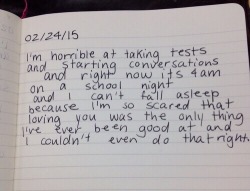 02/24/15
I'm horrible at taking tests
and starting conversations
and right now its 4am
on a school night
and I can't fall asleep
because I'm so scared that
loving you was the only thing
I've ever been good at and
I couldn't even do that right.